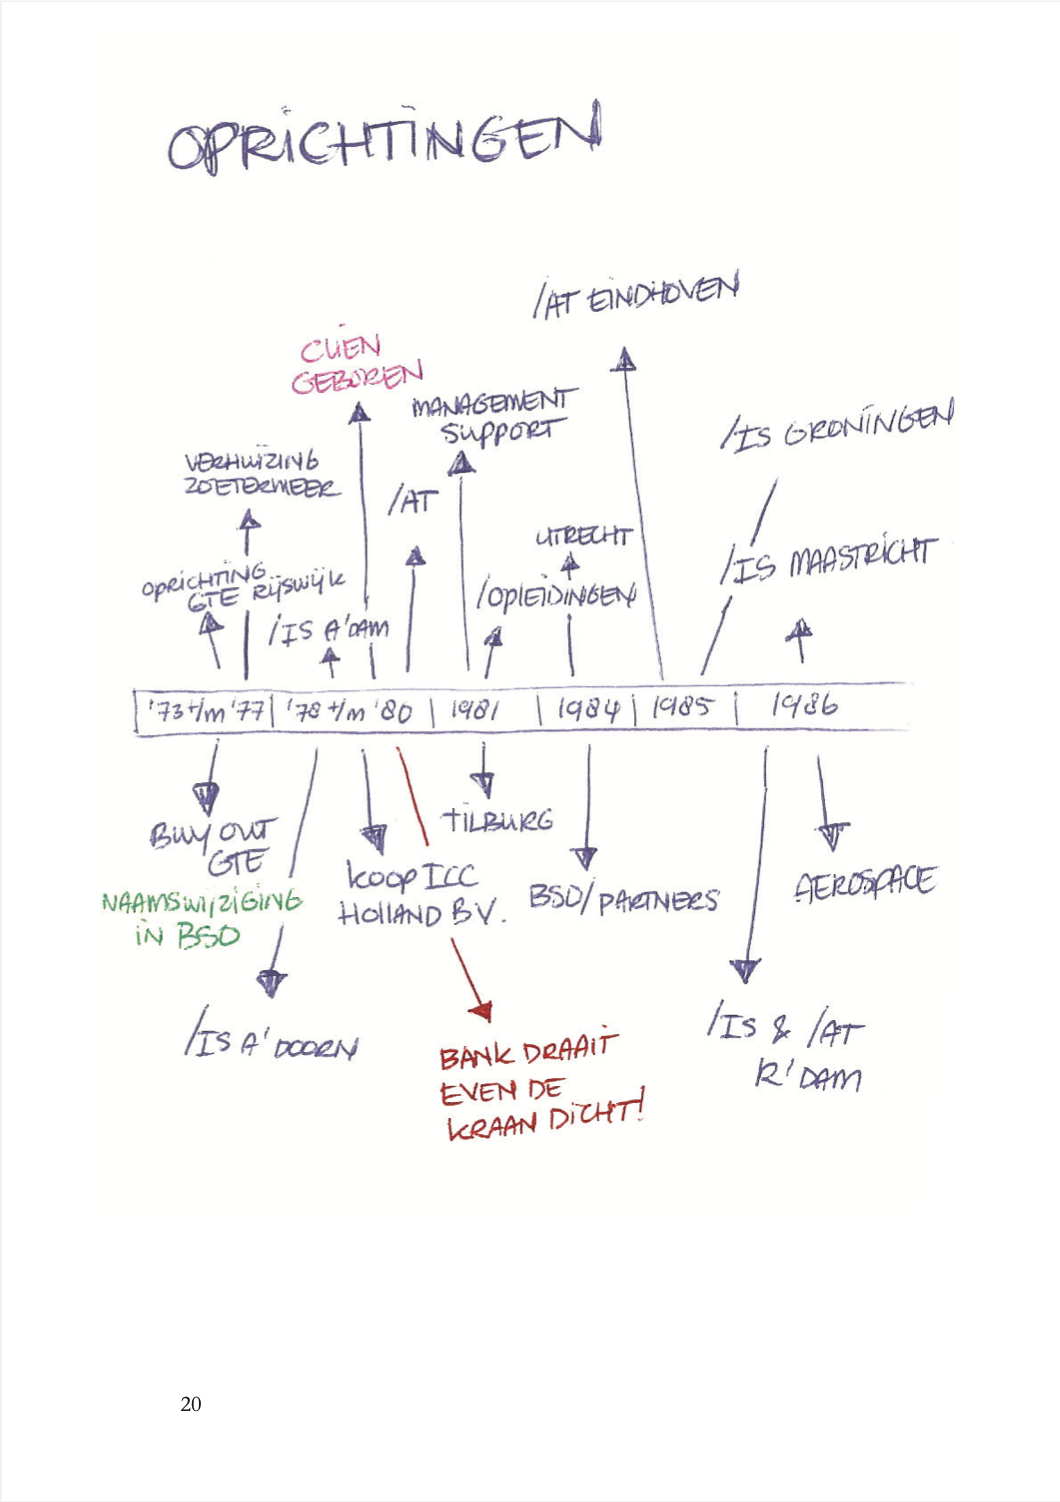 OPRICHTINGEN
/AT EINDHOVEN
CLIËN
GEBOREN
MANAGEMENT
SUPPORT
/IS GRONINGEN
VERHUIZING
ZOETERMEER
/AT
UTRECHT
/IS MAASTRICHT
OPRICHTING
GTE RIJSWIJK
/OPLEIDINGEN
/IS A'DAM
'73 t/m '77 | '78 t/m '80 | 1981 | 1984 | 1985 | 1986
BUY OUT
GTE
TILBURG
NAAMSWIJZIGING
IN BSO
KOOP ICC
HOLLAND B.V.
BSO/PARTNERS
AEROSPACE
/IS A'DOORN
BANK DRAAIT
EVEN DE
KRAAN DICHT!
/IS & /AT
R'DAM
20